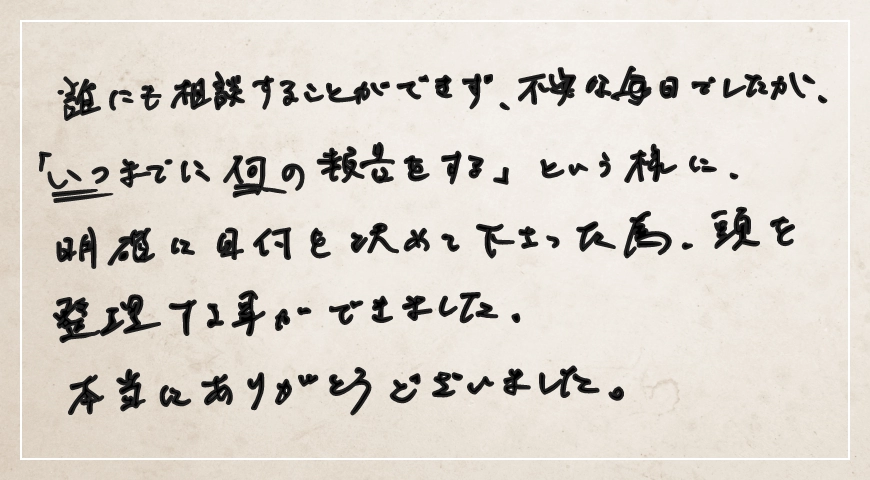 誰にも相談することができず、不安な毎日でしたが、
「いつまでに何の報告をする」という様に、
明確に日付を決めて下さった為、頭を
整理する事ができました。
本当にありがとうございました。